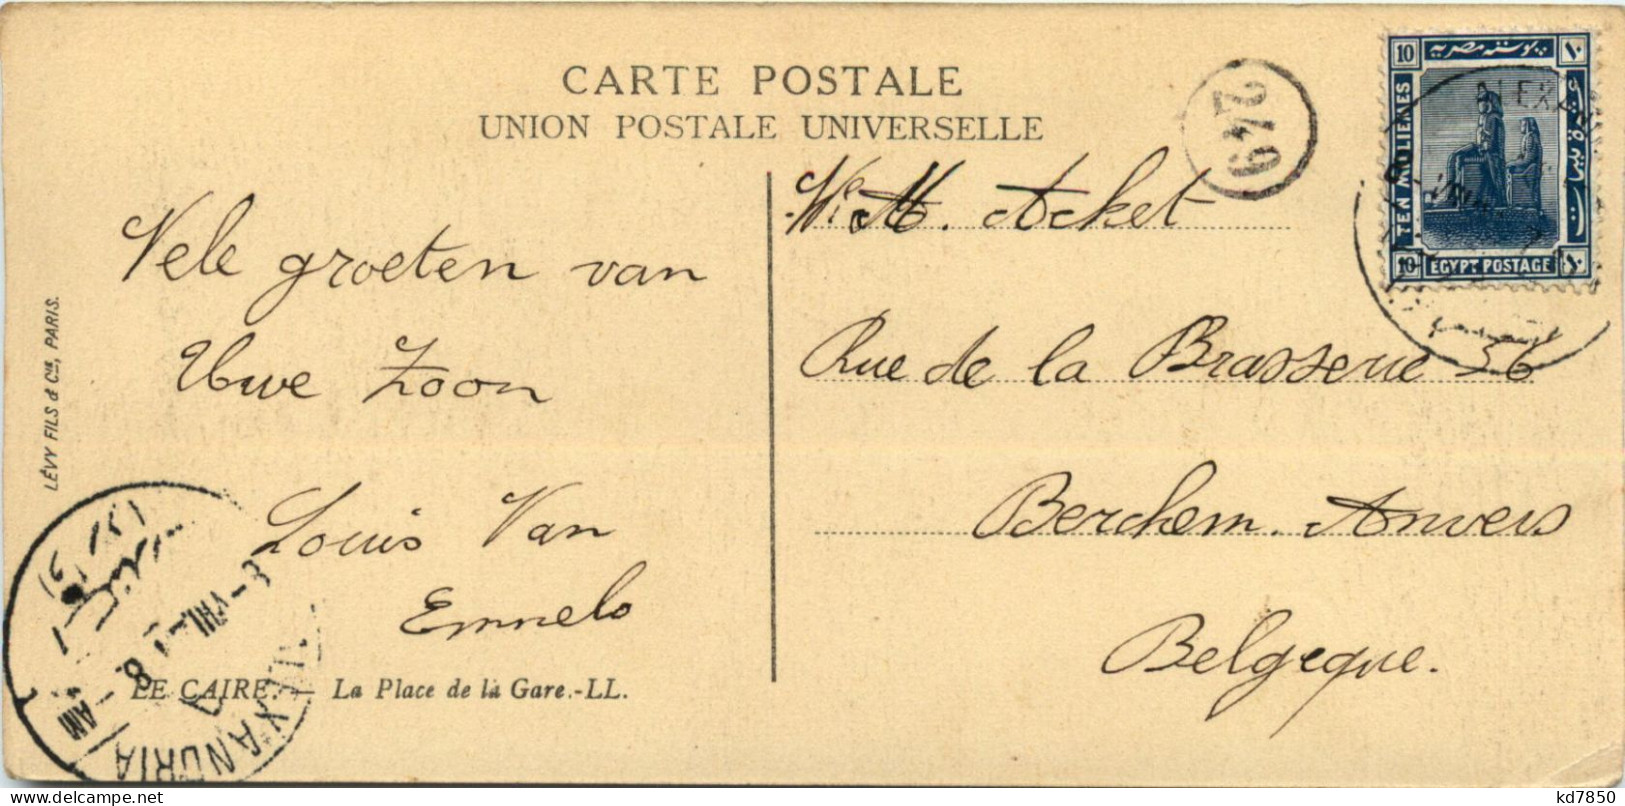 CARTE POSTALE
UNION POSTALE UNIVERSELLE
249
10 بوسته مصريه ١٠
TEN MILIEMES
10 EGYPT POSTAGE ١٠
ALEXAN
Vele groeten van
Uwe Zoon
Louis Van
Emnelo
M. Acket
Rue de la Brasserie 36
Berchem. Anvers
Belgeque.
LÉVY FILS & Cie, PARIS.
LE CAIRE. — La Place de la Gare.-LL.
VIII
8 - AM
ALEXANDRIA
kd7850